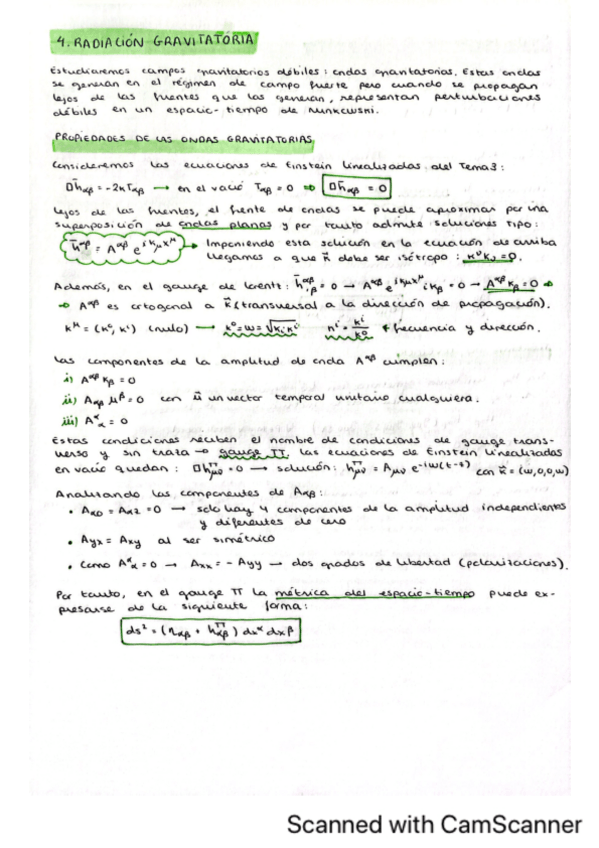 4. RADIACIÓN GRAVITATORIA
Estudiaremos campos gravitatorios débiles: ondas gravitatorias. Estas ondas
se generan en el régimen de campo fuerte pero cuando se propagan
lejos de las fuentes que las generan, representan perturbaciones
débiles en un espacio-tiempo de Minkowski.
PROPIEDADES DE LAS ONDAS GRAVITATORIAS
Consideremos las ecuaciones de Einstein linealizadas del Tema 3:
□h̄αβ = -2κTαβ → en el vacío Tαβ = 0 ⇒ □h̄αβ = 0
Lejos de las fuentes, el frente de ondas se puede aproximar por una
superposición de ondas planas y por tanto admite soluciones tipo:
h̄^αβ = A^αβ e^{i kμ x^μ} → Imponiendo esta solución en la ecuación de arriba
llegamos a que k⃗ debe ser isótropo: k^ν kν = 0.
Además, en el gauge de Lorentz: h̄^αβ,β = 0 → A^αβ e^{i kμ x^μ} i kβ = 0 → A^αβ kβ = 0 ⇒
⇒ A^αβ es ortogonal a k⃗ (transversal a la dirección de propagación).
k^μ = (k⁰, k^i) (nulo) → k⁰ = ω = √(ki k^i) n^i = k^i/k⁰ frecuencia y dirección.
Las componentes de la amplitud de onda A^αβ cumplen:
i) A^αβ kβ = 0
ii) Aαβ μ^β = 0 con u⃗ un vector temporal unitario cualquiera.
iii) A^α α = 0
Estas condiciones reciben el nombre de condiciones de gauge trans-
verso y sin traza → gauge TT, las ecuaciones de Einstein linealizadas
en vacío quedan: □h^TT μν = 0 → solución: h^TT μν = Aμν e^{-iω(t-z)} con k⃗ = (ω,0,0,ω)
Analizando las componentes de Aαβ:
• Aα0 = Aαz = 0 → solo hay 4 componentes de la amplitud independientes
y diferentes de cero
• Ayx = Axy al ser simétrico
• Como A^α α = 0 → Axx = -Ayy → dos grados de libertad (polarizaciones).
Por tanto, en el gauge TT la métrica del espacio-tiempo puede ex-
presarse de la siguiente forma:
ds² = (ηαβ + h^TT αβ) dx^α dxβ
Scanned with CamScanner